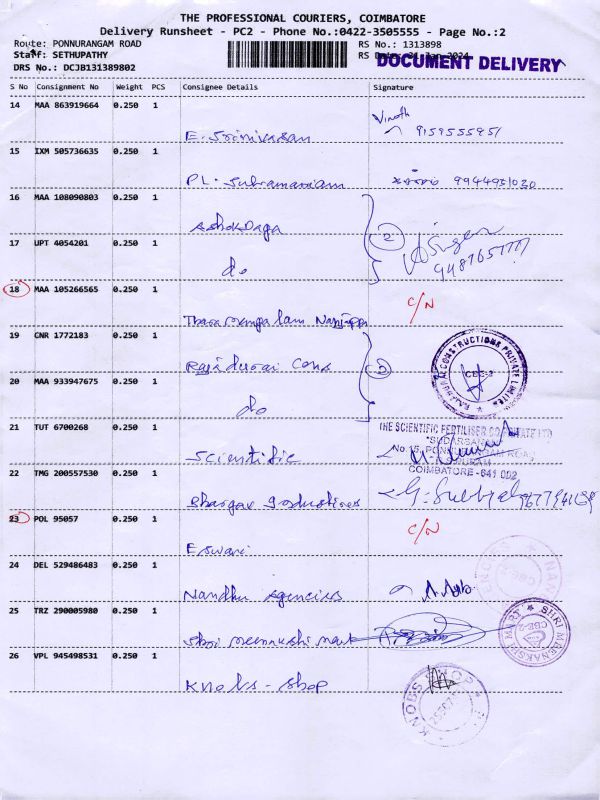 THE PROFESSIONAL COURIERS, COIMBATORE
Delivery Runsheet - PC2 - Phone No.:0422-3505555 - Page No.:2
Route: PONNURANGAM ROAD
RS No.: 1313898
Staff: SETHUPATHY
RS Date:
DOCUMENT DELIVERY
DRS No.: DCJB131389802
S No Consignment No Weight PCS Consignee Details Signature
14 MAA 863919664 0.250 1
E. Srinivasan
Vinoth
15 IXM 505736635 0.250 1
PL. Subramaniam
16 MAA 108090803 0.250 1
AshokDaga
2
17 UPT 4054201 0.250 1
do
18 MAA 105266565 0.250 1
C/N
19 CNR 1772183 0.250 1
Rajdurai Cons
20 MAA 933947675 0.250 1
do
CBE-2
21 TUT 6700268 0.250 1
Scientific
THE SCIENTIFIC FERTILISER CO
COIMBATORE - 641 002
22 TMG 200557530 0.250 1
23 POL 95057 0.250 1
Eswari
C/N
24 DEL 529486483 0.250 1
Nandhu Agencies
25 TRZ 290005980 0.250 1
Shri Meenakshi Mart
SHRI MEENAKSHI MART
CBE-2
26 VPL 945498531 0.250 1
Knobs - Shop
KNOBS SHOP